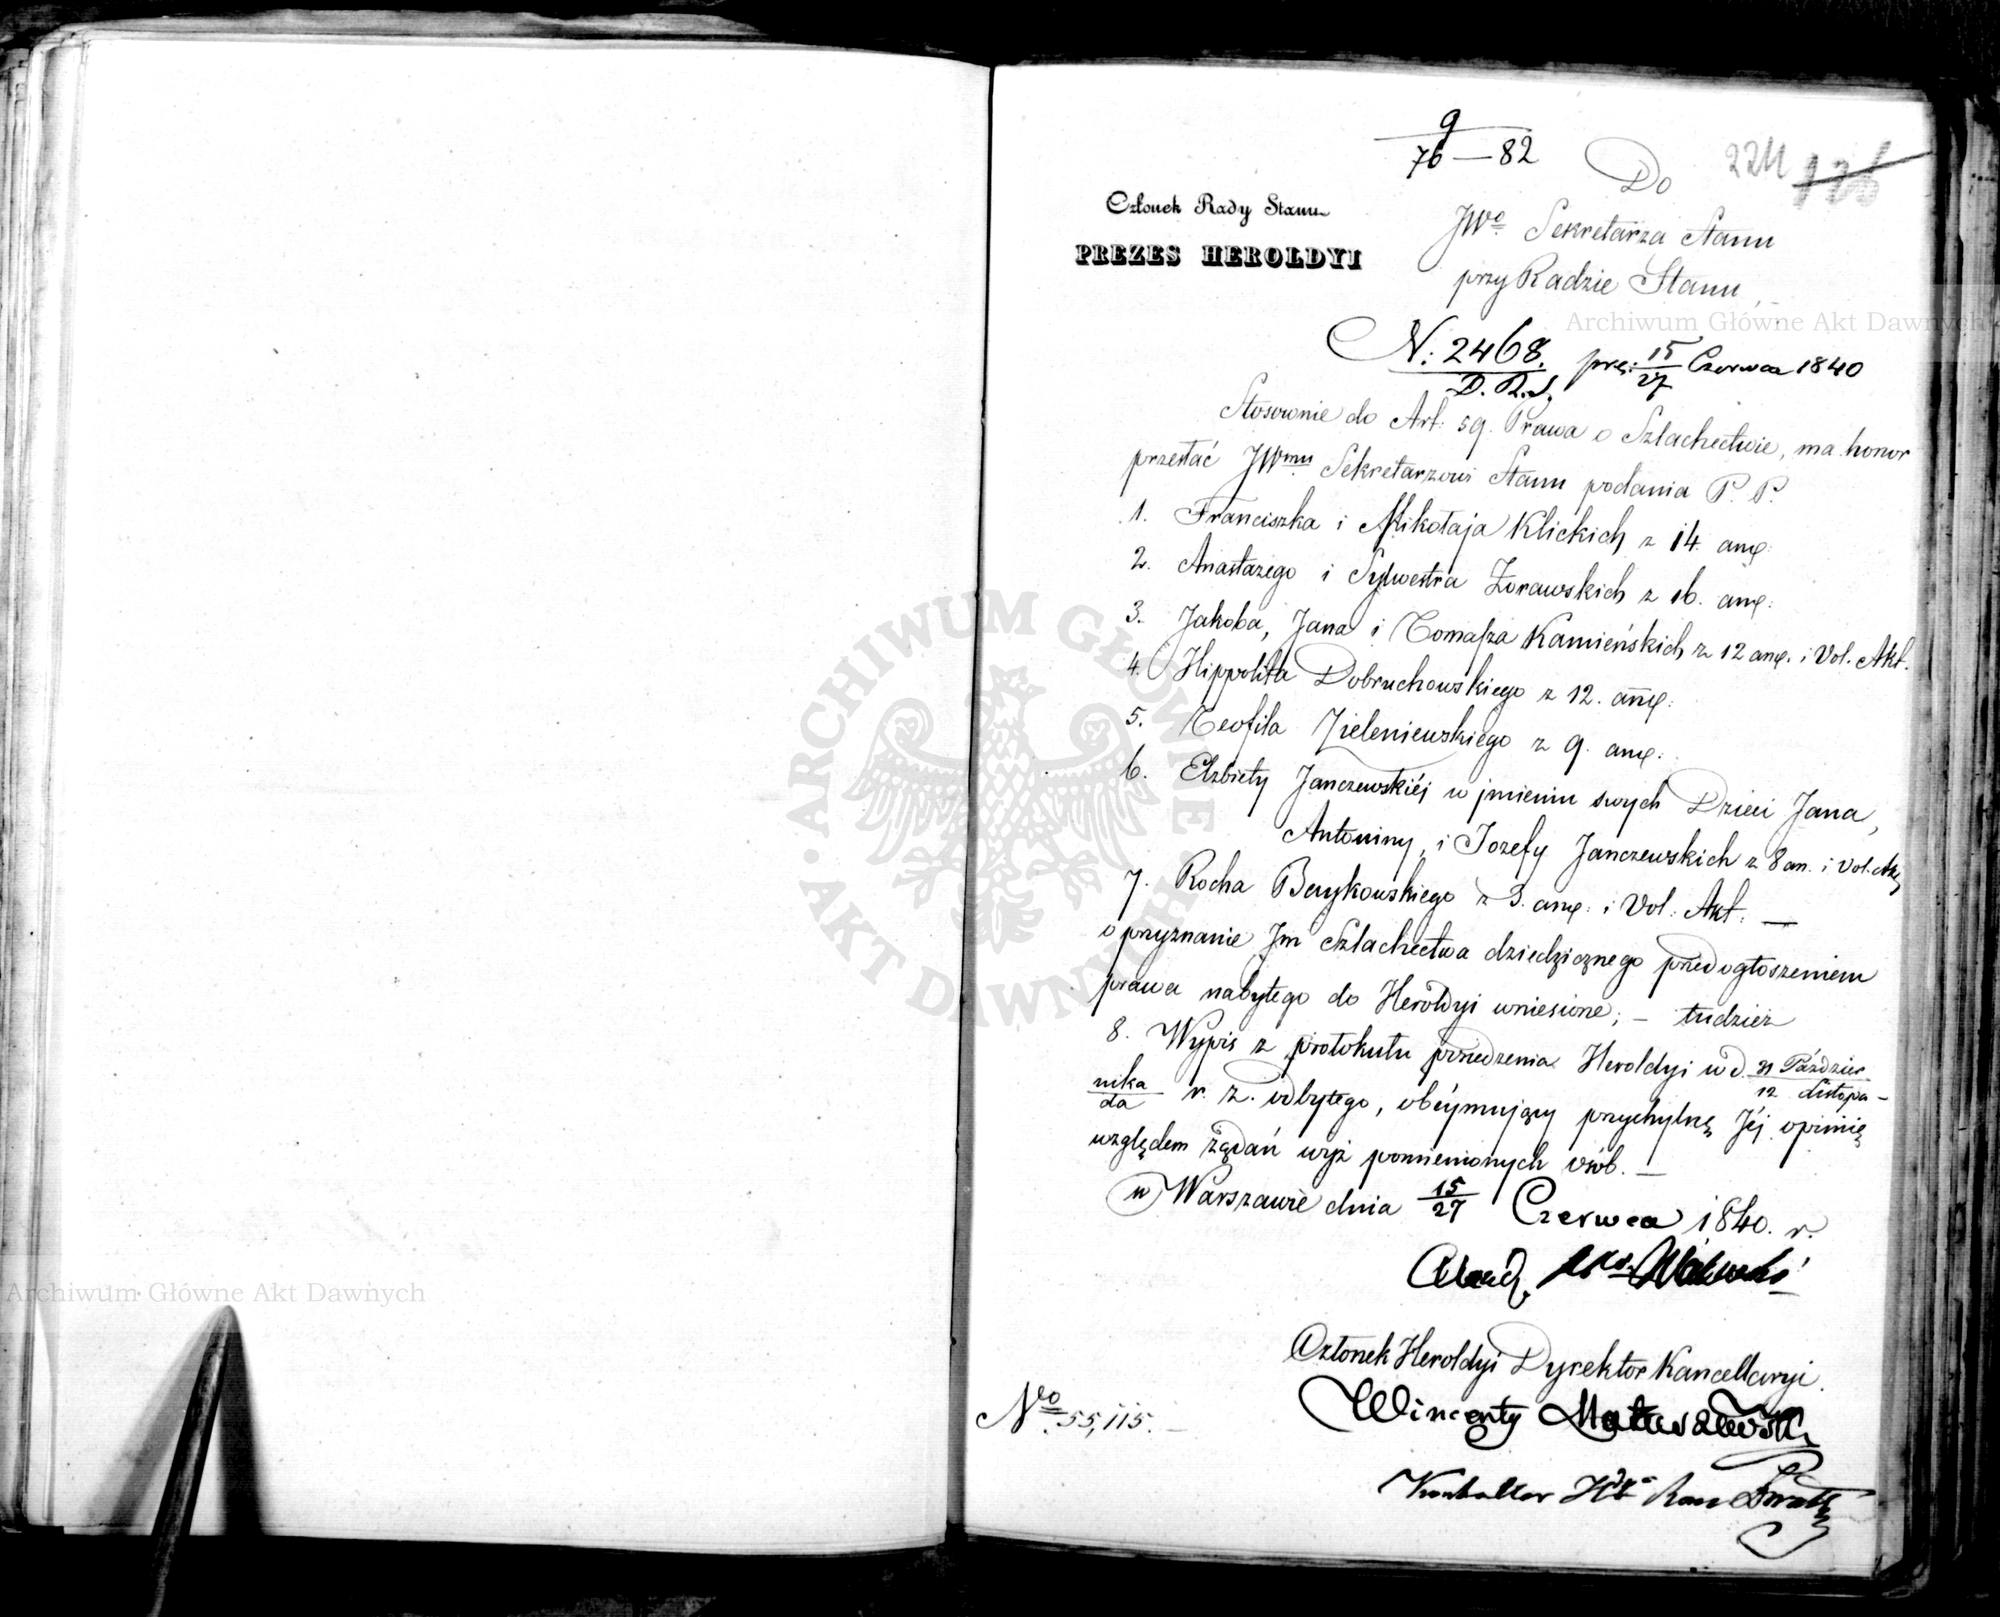 9
76 — 82
Do
224
Członek Rady Stanu
PREZES HEROLDYI
JWo. Sekretarza Stanu
przy Radzie Stanu,
N: 2468. prz: 15/27 Czerwca 1840
D. R. S.
Stosownie do Art: 59. Prawa o Szlachectwie, ma honor
przesłać JWmu Sekretarzowi Stanu podania P. P.
1. Franciszka i Mikołaja Klickich z 14. anę:
2. Anastazego i Sylwestra Żorawskich z 16. anę:
3. Jakóba, Jana i Tomasza Kamieńskich z 12 anę. i Vol. Akt.
4. Hippolita Dobruchowskiego z 12. anę:
5. Teofila Zieleniewskiego z 9. anę:
6. Elżbiety Janczewskiéj w jmieniu swych Dzieci Jana,
Antoniny, i Jozefy Janczewskich z 8 an. i Vol. Akt
7. Rocha Berykowskiego z 3. anę: i Vol: Akt: —
o przyznanie Jm Szlachectwa dziedzicznego przed ogłoszeniem
prawa nabytego do Heroldyi wniesione; — tudzież
8. Wypis z protokułu posiedzenia Heroldyi w d. 31 Paździer
nika r. z. odbytego, obéymujący przychylną Jéj opinię
da 12 Listopa-
względem żądań wyż pomienionych osób. —
w Warszawie dnia 15/27 Czerwca 1840. r.
Członek Heroldyi Dyrektor Kancellaryi.
No. 55,115. —
Wincenty Matuszewski
Archiwum Główne Akt Dawnych
Archiwum Główne Akt Dawnych
ARCHIWUM GŁÓWNE • AKT DAWNYCH •